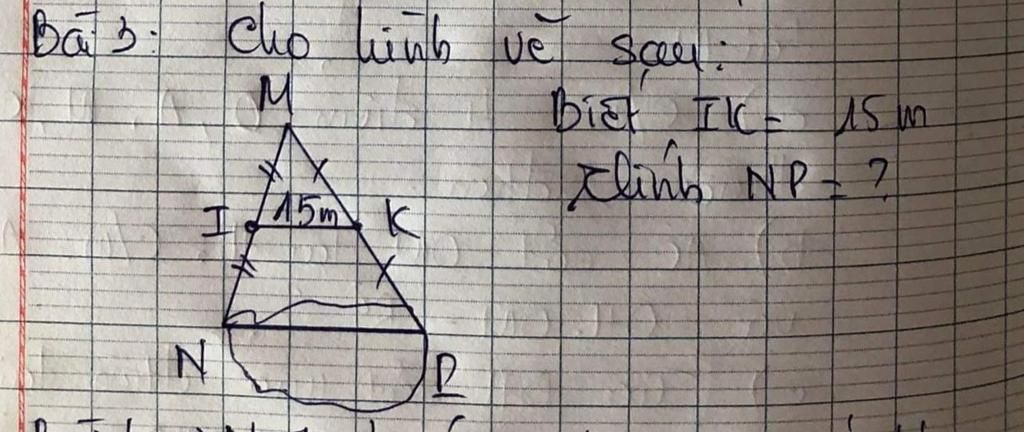 Bài 3: Cho hình vẽ sau:
Biết IK = 15m
Tính NP = ?
M
I 15m K
N P